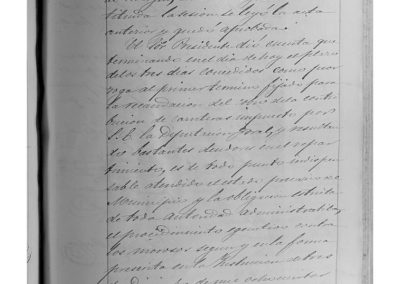 tituida la sesion se leyó la acta
anterior y quedó aprobada.
El Sor. Presidente dió cuenta que
terminando en el dia de hoy el plazo
de los tres dias concedidos como pror
roga al primer termino fijado para
la recaudacion del
de la contri
bucion de impuesto por
S. E. la Diputacion foral, y resultan
do bastantes deudores en el repar
timiento, es de todo punto indispen
sable atendido el estado
Municipio y la obligacion
de toda Autoridad Administrativa,
el procedimiento ejecutivo contra
los morosos segun y en la forma
prescrita en la Instruccion de tres
de mil ochocientos